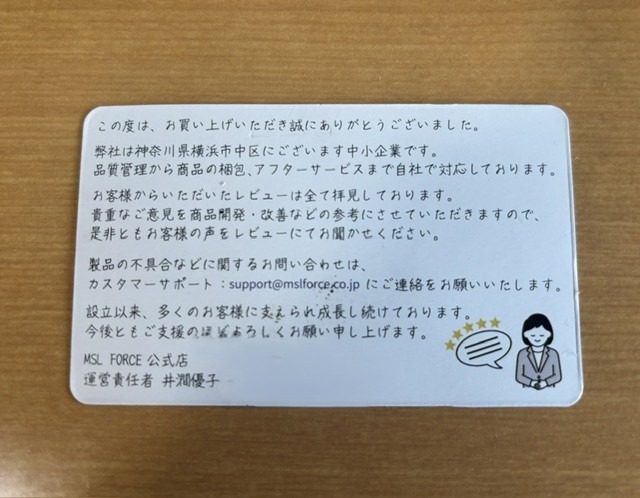 この度は、お買い上げいただき誠にありがとうございました。
弊社は神奈川県横浜市中区にございます中小企業です。
品質管理から商品の梱包、アフターサービスまで自社で対応しております。
お客様からいただいたレビューは全て拝見しております。
貴重なご意見を商品開発・改善などの参考にさせていただきますので、
是非ともお客様の声をレビューにてお聞かせください。
製品の不具合などに関するお問い合わせは、
カスタマーサポート：support@mslforce.co.jp にご連絡をお願いいたします。
設立以来、多くのお客様に支えられ成長し続けております。
今後ともご支援のほどよろしくお願い申し上げます。
MSL FORCE 公式店
運営責任者 井潤優子